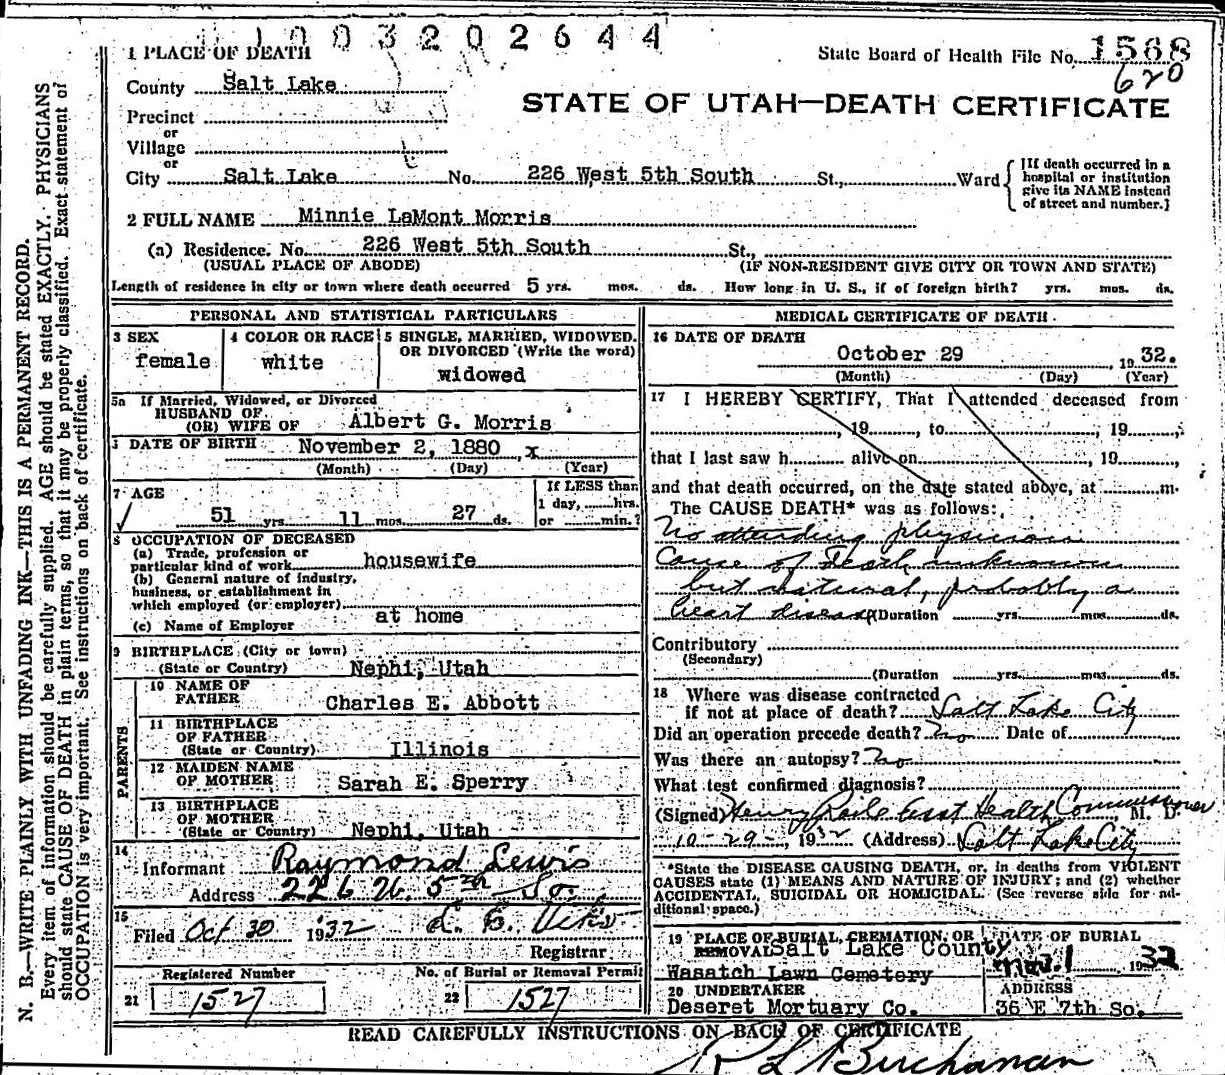 1003202644
1 PLACE OF DEATH
State Board of Health File No. 1568
620
County Salt Lake
STATE OF UTAH—DEATH CERTIFICATE
Precinct
or
Village
or
City Salt Lake No. 226 West 5th South St., Ward
[If death occurred in a
hospital or institution
give its NAME instead
of street and number.]
2 FULL NAME Minnie LaMont Morris
(a) Residence. No. 226 West 5th South St.,
(USUAL PLACE OF ABODE) (IF NON-RESIDENT GIVE CITY OR TOWN AND STATE)
Length of residence in city or town where death occurred 5 yrs. mos. ds. How long in U. S., if of foreign birth? yrs. mos. ds.
N. B.—WRITE PLAINLY WITH UNFADING INK—THIS IS A PERMANENT RECORD.
Every item of information should be carefully supplied. AGE should be stated EXACTLY. PHYSICIANS
should state CAUSE OF DEATH in plain terms, so that it may be properly classified. Exact statement of
OCCUPATION is very important. See instructions on back of certificate.
PERSONAL AND STATISTICAL PARTICULARS
3 SEX
female
4 COLOR OR RACE
white
5 SINGLE, MARRIED, WIDOWED,
OR DIVORCED (Write the word)
widowed
5a If Married, Widowed, or Divorced
HUSBAND OF
(OR) WIFE OF Albert G. Morris
DATE OF BIRTH November 2, 1880 x
(Month) (Day) (Year)
7 AGE
51 yrs. 11 mos. 27 ds.
If LESS than
1 day, hrs.
or min.?
8 OCCUPATION OF DECEASED
(a) Trade, profession or
particular kind of work housewife
(b) General nature of industry,
business, or establishment in
which employed (or employer) at home
(c) Name of Employer
9 BIRTHPLACE (City or town)
(State or Country) Nephi, Utah
PARENTS
10 NAME OF
FATHER Charles E. Abbott
11 BIRTHPLACE
OF FATHER
(State or Country) Illinois
12 MAIDEN NAME
OF MOTHER Sarah E. Sperry
13 BIRTHPLACE
OF MOTHER
(State or Country) Nephi, Utah
14
Informant Raymond Lewis
Address 226 W. 5th So.
15
Filed Oct 30 1932
Registrar
Registered Number
21 1527
No. of Burial or Removal Permit
22 1527
MEDICAL CERTIFICATE OF DEATH
16 DATE OF DEATH
October 29 1932.
(Month) (Day) (Year)
17 I HEREBY CERTIFY, That I attended deceased from
, 19 , to , 19 ,
that I last saw h alive on , 19 ,
and that death occurred, on the date stated above, at m.
The CAUSE DEATH* was as follows:
No attending physician
Cause of Death unknown
but natural, probably a
heart disease (Duration yrs. mos. ds.
Contributory
(Secondary)
(Duration yrs. mos. ds.
18 Where was disease contracted
if not at place of death? Salt Lake City
Did an operation precede death? no Date of
Was there an autopsy? no
What test confirmed diagnosis?
(Signed) Henry Raile Asst Health Commissioner, M. D.
10-29-, 1932 (Address) Salt Lake City
*State the DISEASE CAUSING DEATH, or, in deaths from VIOLENT
CAUSES state (1) MEANS AND NATURE OF INJURY; and (2) whether
ACCIDENTAL, SUICIDAL OR HOMICIDAL. (See reverse side for ad-
ditional space.)
19 PLACE OF BURIAL, CREMATION, OR
REMOVAL Salt Lake County
Wasatch Lawn Cemetery
DATE OF BURIAL
Nov. 1 1932
20 UNDERTAKER
Deseret Mortuary Co.
ADDRESS
36 E 7th So.
READ CAREFULLY INSTRUCTIONS ON BACK OF CERTIFICATE
R L Buchanan